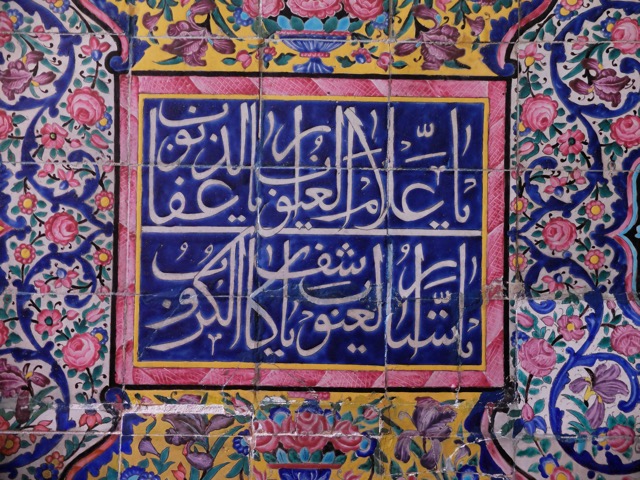 یا علّام الغیوب یا غفار الذنوب
یا ستّار العیوب یا کاشف الکروب